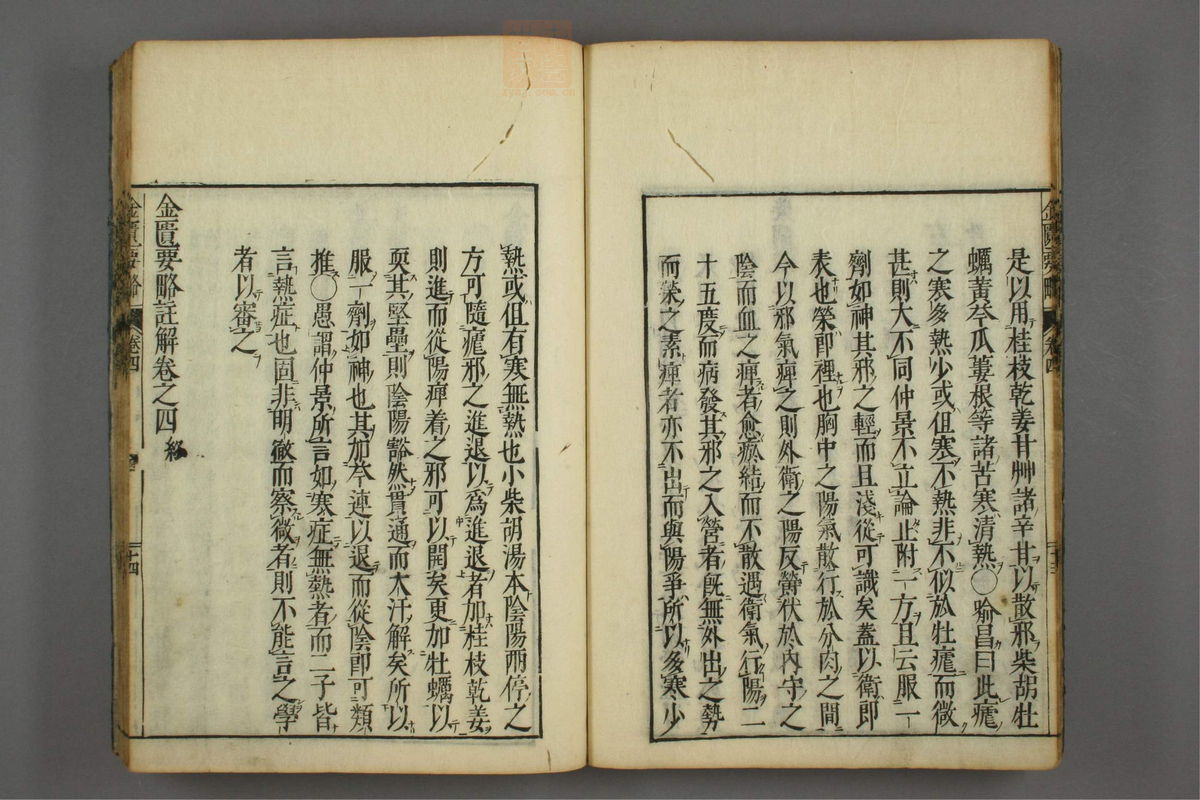 是以用桂枝乾姜甘艸諸辛甘以散邪柴胡牡
蠣黃芩瓜蔞根等諸苦寒清熱○喻昌曰此瘧
之寒多熱少或但寒不熱非不似於牡瘧而微
甚則大不同仲景不立論止附一方且云服一
劑如神其邪之輕而且淺從可識矣蓋以衛即
表也榮即裡也胸中之陽氣散行於分肉之間
今以邪氣痺之則外衛之陽反欝伏於內守之
陰而血之痺者愈瘀結而不散遇衛氣行陽二
十五度而病發其邪之入營者既無外出之勢
而榮之素痺者亦不出而與陽爭所以多寒少
熱或但有寒無熱也小柴胡湯本陰陽兩停之
方可隨瘧邪之進退以爲進退者加桂枝乾姜
則進而從陽痺着之邪可以開矣更加牡蠣以
耎其堅壘則陰陽豁然貫通而大汗解矣所以
服一劑如神也其加芩連以退而從陰即可類
推○愚謂仲景所言如寒症無熱者而二子皆
言熱症也固非明徹而察微者則不能言之學
者以審之
金匱要略註解卷之四終
金匱要略
卷四
十四